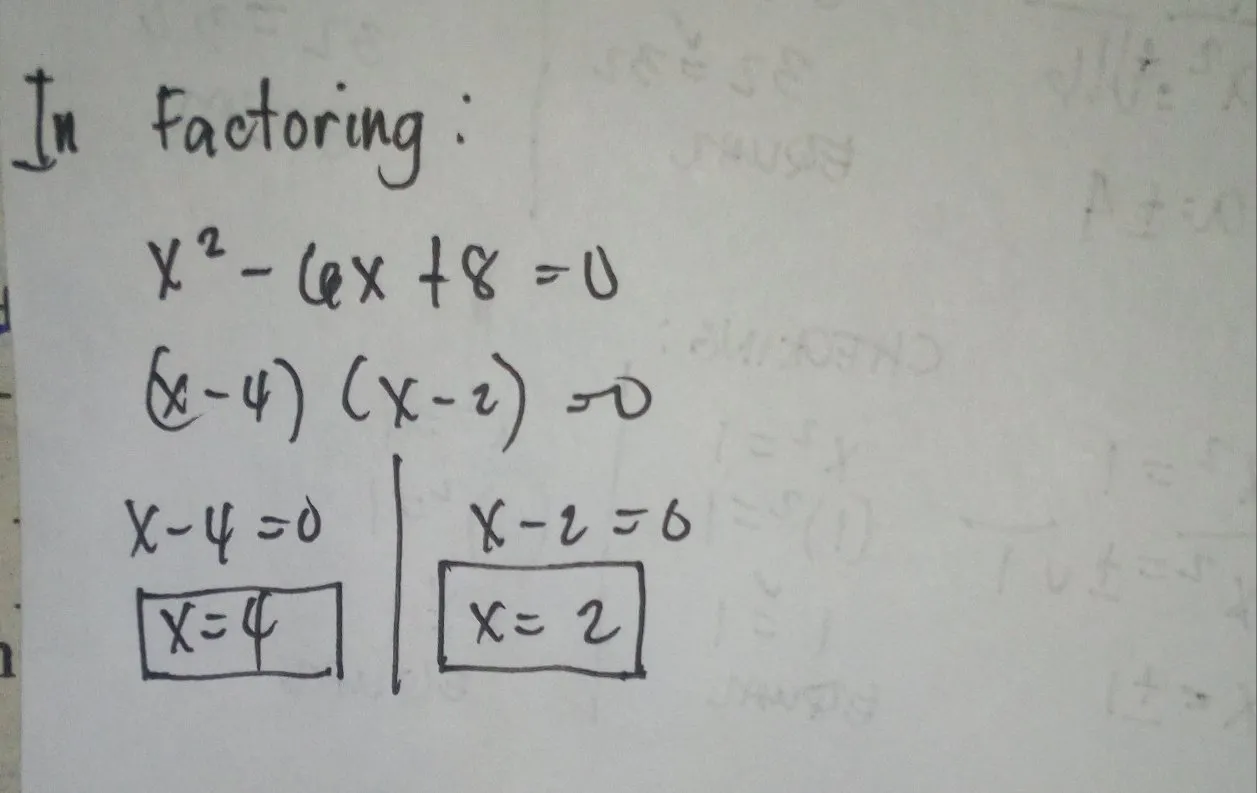 In Factoring:
x² - 6x + 8 = 0
(x - 4) (x - 2) = 0
x - 4 = 0 | x - 2 = 0
x = 4 | x = 2